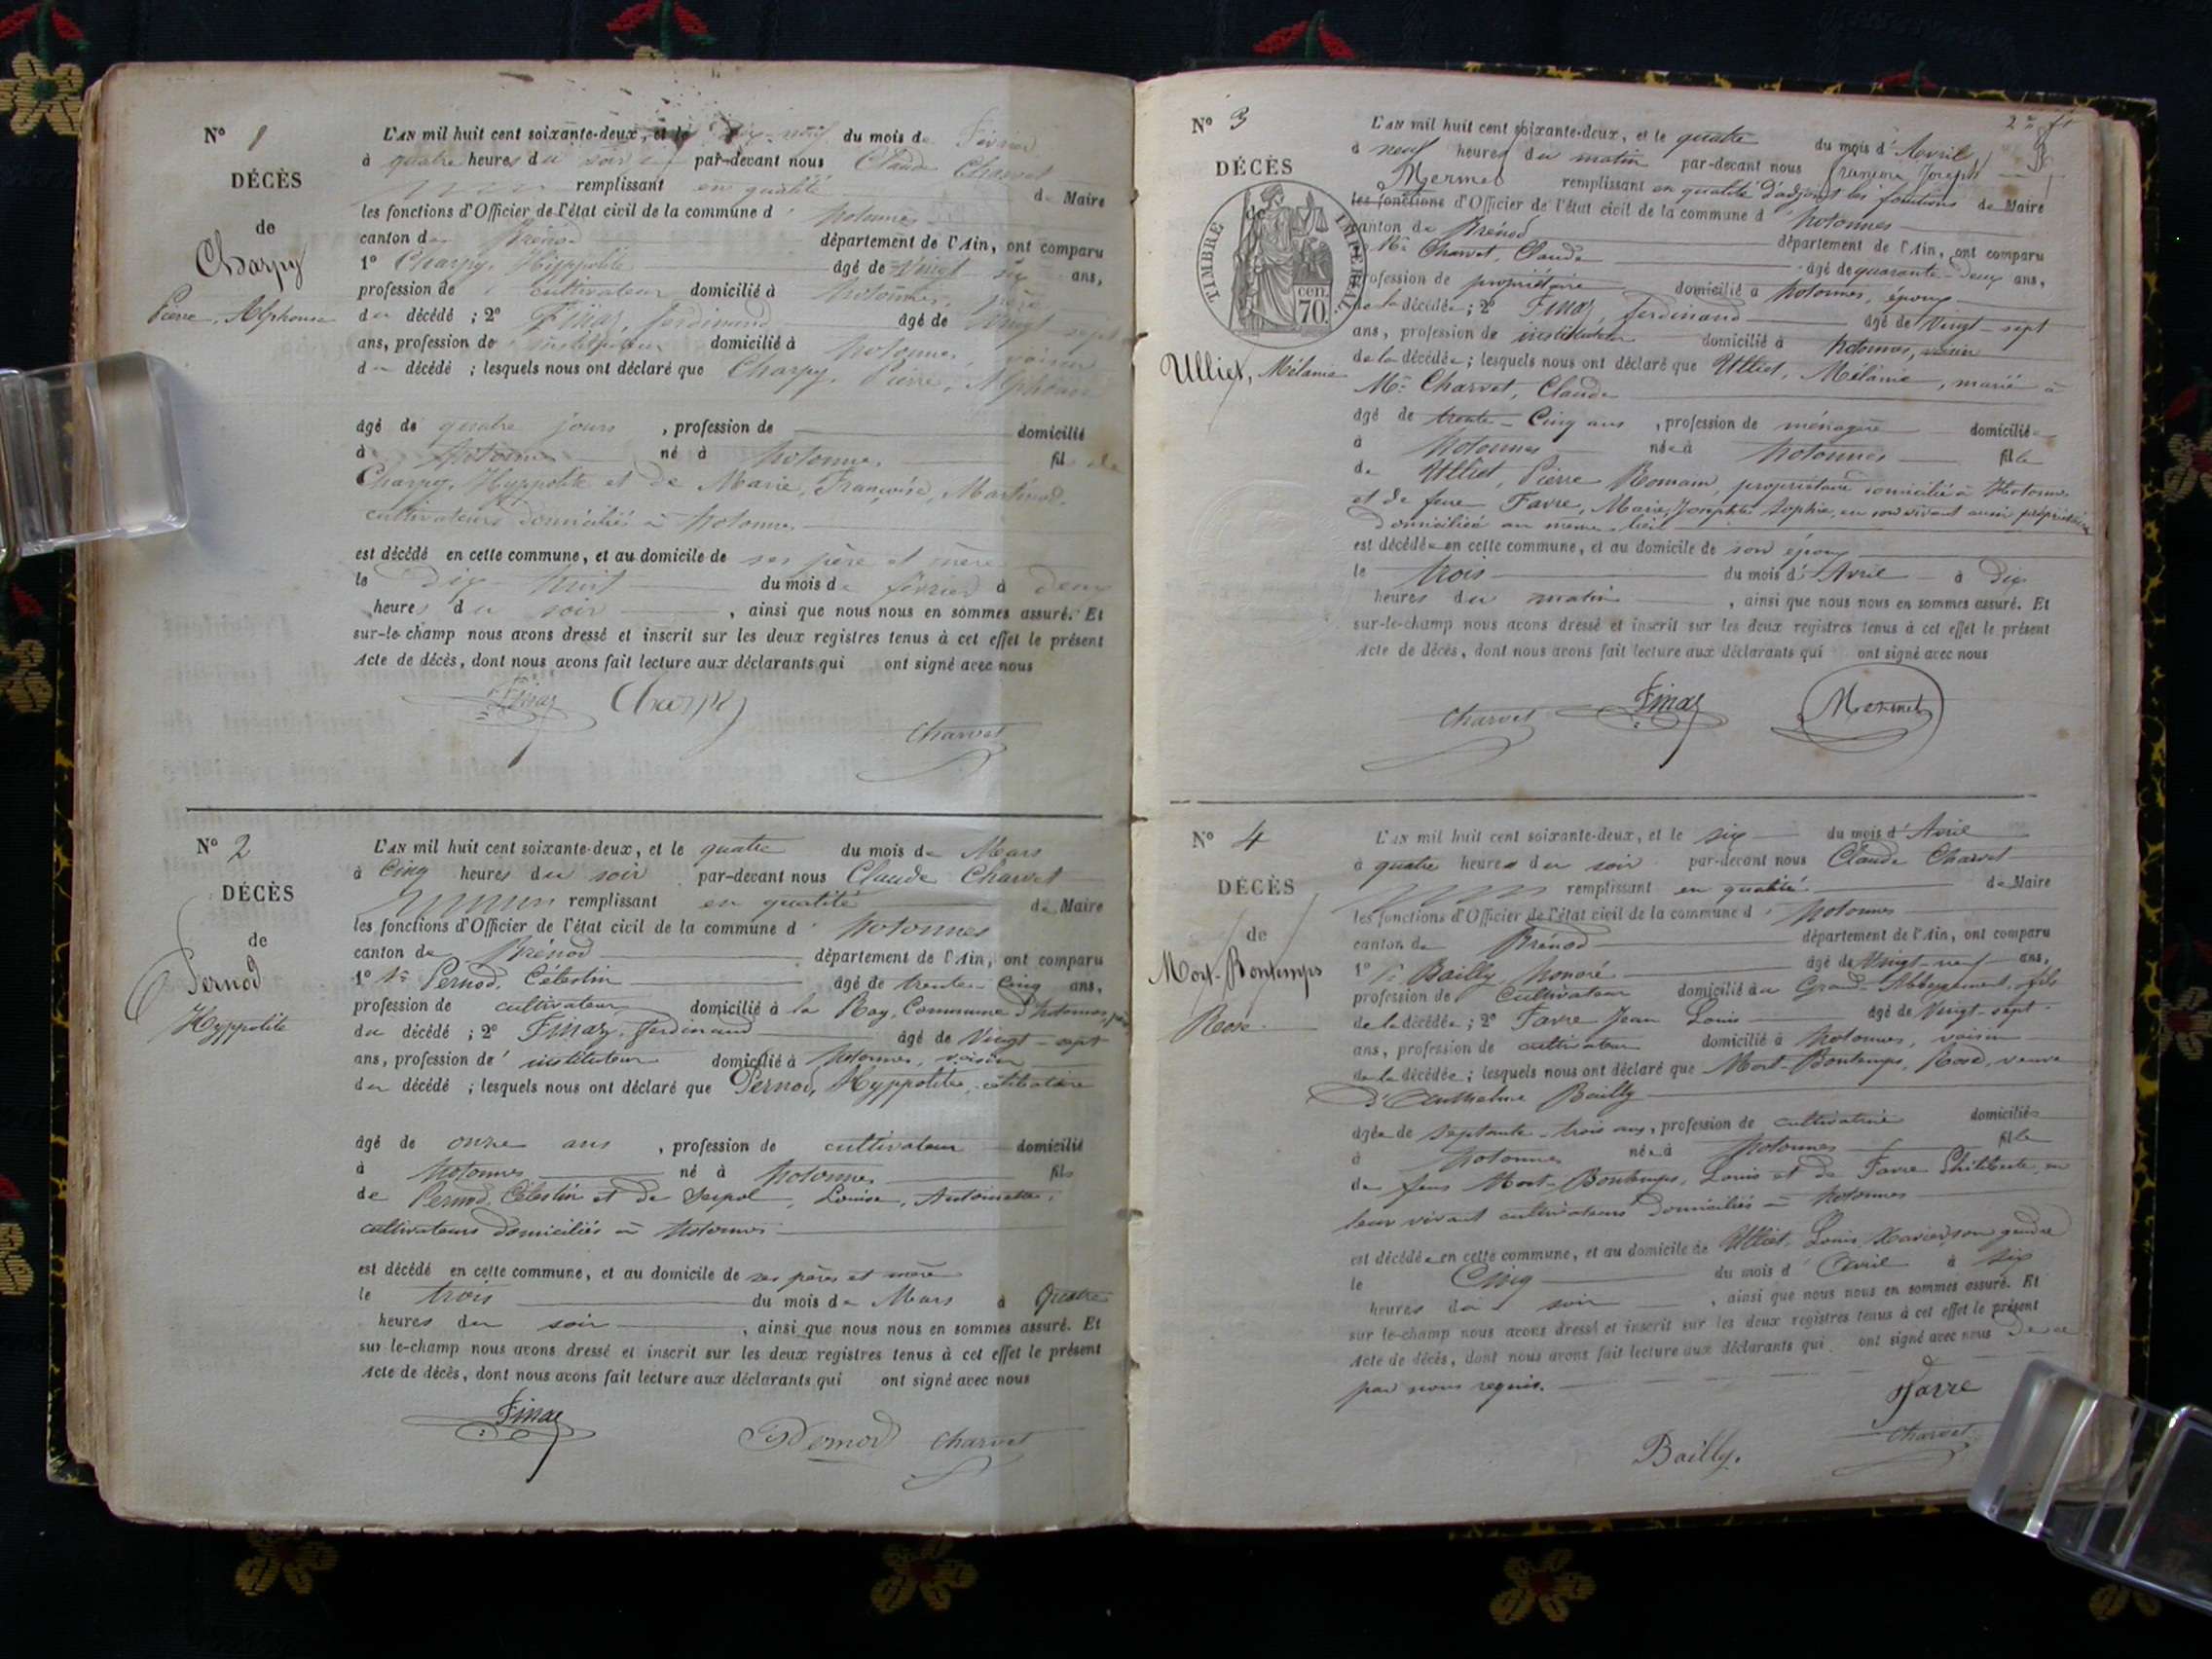 N° 1
DÉCÈS
de
Charpy
Pierre, Alphonse
L'AN mil huit cent soixante-deux, et le dix-neuf du mois de Février
à quatre heures du soir par-devant nous Claude Charvet
remplissant en qualité de Maire
les fonctions d'Officier de l'état civil de la commune d' hotonnes
canton de Brénod département de l'Ain, ont comparu
1° Charpy, Hyppolite âgé de Vingt-six ans,
profession de cultivateur domicilié à hotonnes, père
du décédé ; 2° Finaz, Ferdinand âgé de Vingt-sept
ans, profession de instituteur domicilié à hotonnes, voisin
du décédé ; lesquels nous ont déclaré que Charpy, Pierre, Alphonse
âgé de quatre jours , profession de domicilié
à hotonnes né à hotonnes fils de
Charpy, Hyppolite et de Marie, Françoise, Martinod,
cultivateurs domiciliés à hotonnes
est décédé en cette commune, et au domicile de ses père et mère
le Dix-huit du mois de février à deux
heures du soir , ainsi que nous nous en sommes assuré. Et
sur-le-champ nous avons dressé et inscrit sur les deux registres tenus à cet effet le présent
Acte de décès, dont nous avons fait lecture aux déclarants qui ont signé avec nous
Finaz Charpy
Charvet
N° 2
DÉCÈS
de
Pernod
Hyppolite
L'AN mil huit cent soixante-deux, et le quatre du mois de Mars
à Cinq heures du soir par-devant nous Claude Charvet
remplissant en qualité de Maire
les fonctions d'Officier de l'état civil de la commune d' hotonnes
canton de Brénod département de l'Ain, ont comparu
1° Pernod, Célestin âgé de trente-Cinq ans,
profession de cultivateur domicilié à la Commune d'hotonnes, père
du décédé ; 2° Finaz, Ferdinand âgé de Vingt-sept
ans, profession de instituteur domicilié à hotonnes, voisin
du décédé ; lesquels nous ont déclaré que Pernod, Hyppolite, célibataire
âgé de onze ans , profession de cultivateur domicilié
à hotonnes né à hotonnes fils
de Pernod, Célestin et de Louise, Antoinette,
cultivateurs domiciliés à hotonnes
est décédé en cette commune, et au domicile de ses père et mère
le trois du mois de Mars à Quatre
heures du soir , ainsi que nous nous en sommes assuré. Et
sur le-champ nous avons dressé et inscrit sur les deux registres tenus à cet effet le présent
Acte de décès, dont nous avons fait lecture aux déclarants qui ont signé avec nous
Finaz
Pernod Charvet
N° 3
DÉCÈS
de
TIMBRE IMPÉRIAL
70 cen.
Ulliet, Mélanie
L'AN mil huit cent soixante-deux, et le quatre du mois d'Avril
à neuf heures du matin par-devant nous François Joseph
Mermet remplissant en qualité d'adjoint les fonctions de Maire
les fonctions d'Officier de l'état civil de la commune d' hotonnes
canton de Brénod département de l'Ain, ont comparu
Charvet, Claude âgé de quarante-deux ans,
profession de propriétaire domicilié à hotonnes, époux
de la décédée ; 2° Finaz, Ferdinand âgé de Vingt-sept
ans, profession de instituteur domicilié à hotonnes, voisin
de la décédée ; lesquels nous ont déclaré que Ulliet, Mélanie, mariée à
Mr Charvet, Claude
âgé de trente-Cinq ans , profession de ménagère domiciliée
à hotonnes née à hotonnes fille
de Ulliet, Pierre Romain, propriétaire domicilié à Hotonnes
et de feue Favre, Marie Josephte Sophie, en son vivant aussi propriétaire
domiciliée au même lieu
est décédée en cette commune, et au domicile de son époux
le trois du mois d'Avril à dix
heures du matin , ainsi que nous nous en sommes assuré. Et
sur-le-champ nous avons dressé et inscrit sur les deux registres tenus à cet effet le présent
Acte de décès, dont nous avons fait lecture aux déclarants qui ont signé avec nous
Charvet Finaz Mermet
N° 4
DÉCÈS
de
Mort-Bontemps
Rose
L'AN mil huit cent soixante-deux, et le six du mois d'Avril
à quatre heures du soir par-devant nous Claude Charvet
remplissant en qualité de Maire
les fonctions d'Officier de l'état civil de la commune d' hotonnes
canton de Brénod département de l'Ain, ont comparu
1° Bailly, honoré âgé de Vingt-neuf ans,
profession de Cultivateur domicilié au Grand-Abbergement, fils
de la décédée ; 2° Favre Jean Louis âgé de Vingt-sept
ans, profession de cultivateur domicilié à hotonnes, voisin
de la décédée ; lesquels nous ont déclaré que Mort-Bontemps, Rose, veuve
d'Anthelme Bailly
âgée de septante-trois ans, profession de cultivatrice domiciliée
à hotonnes née à hotonnes fille
de feus Mort-Bontemps, Louis et de Favre Philiberte, en
leur vivant cultivateurs domiciliés à hotonnes
est décédée en cette commune, et au domicile de Ulliet, Louis Xavier, son gendre
le Cinq du mois d'Avril à six
heures du soir , ainsi que nous nous en sommes assuré. Et
sur le-champ nous avons dressé et inscrit sur les deux registres tenus à cet effet le présent
Acte de décès, dont nous avons fait lecture aux déclarants qui ont signé avec nous de ce
par nous requis.
Favre
Charvet
Bailly.